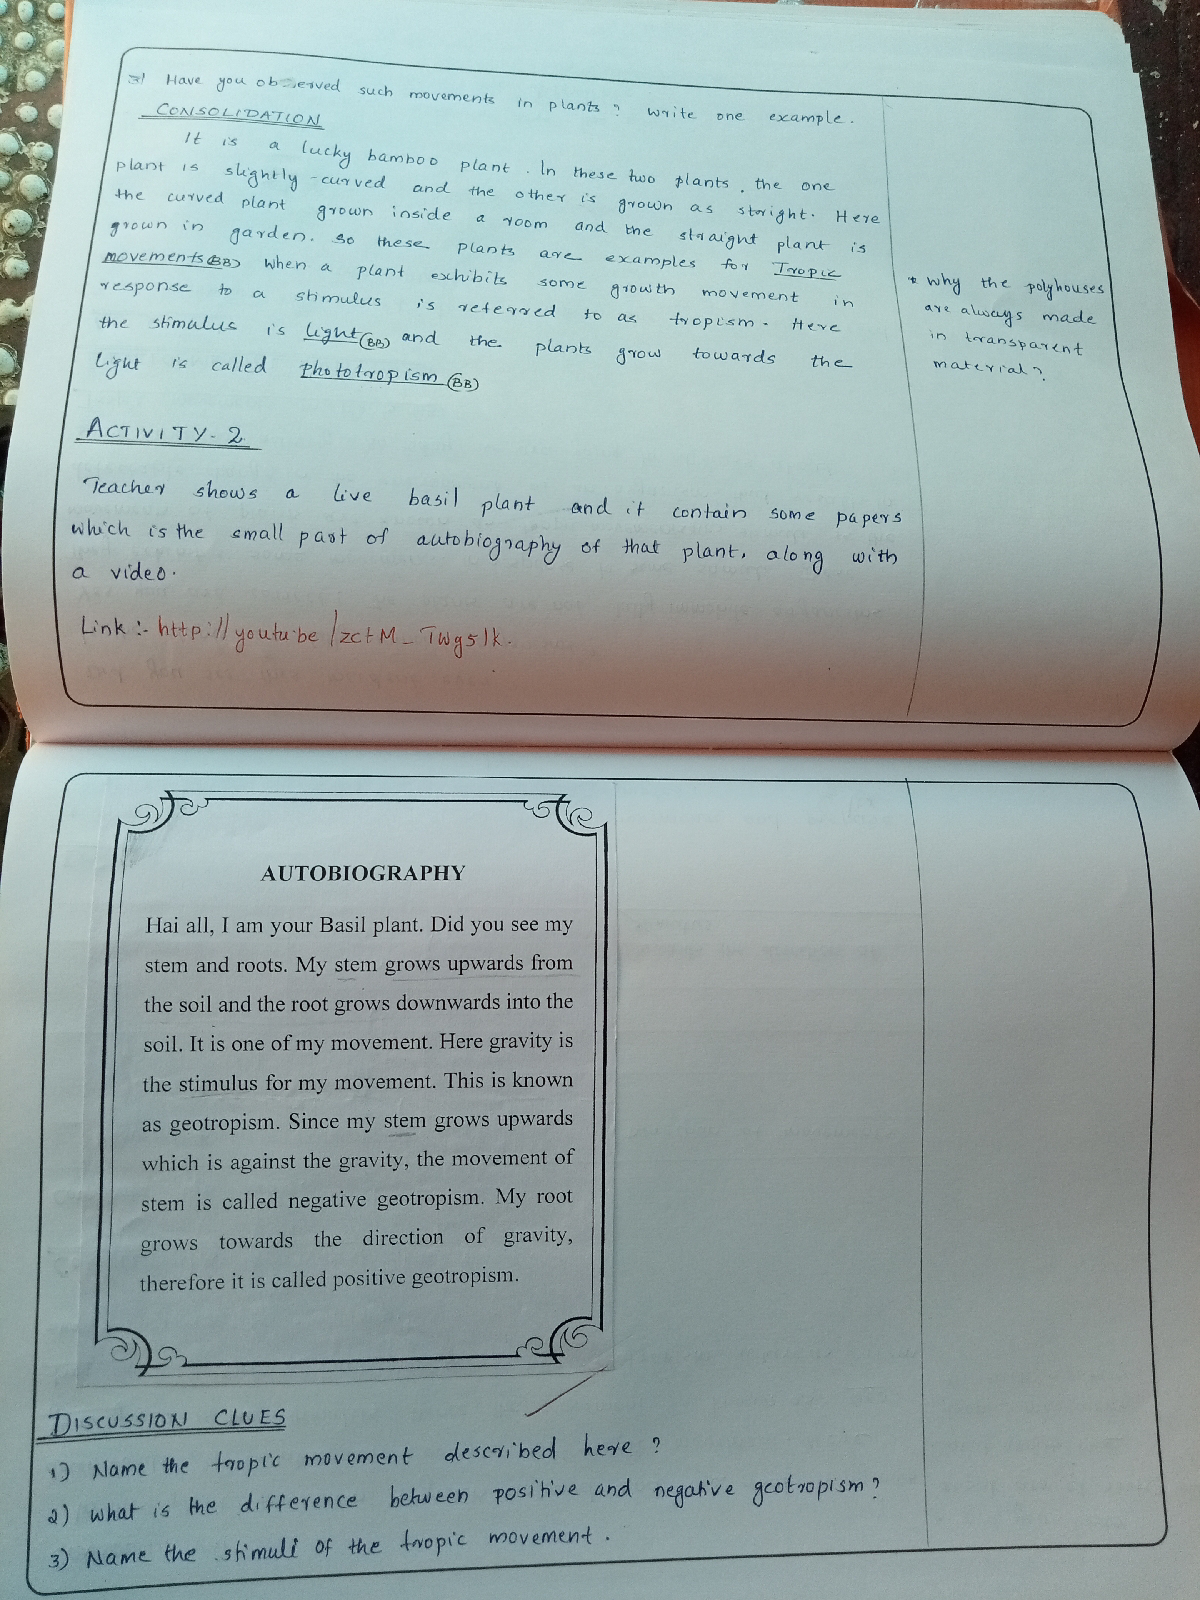 3) Have you observed such movements in plants? Write one example.
CONSOLIDATION
It is a lucky bamboo plant. In these two plants, the one
plant is slightly-curved and the other is grown as storight. Here
the curved plant grown inside a room and the straight plant is
grown in garden. so these plants are examples for Tropic
movements(BB) When a plant exhibits some growth movement in
response to a stimulus is referred to as tropism. Here
the stimulus is light(BB) and the plants grow towards the
light is called phototropism (BB)
* Why the polyhouses
are always made
in transparent
material?
ACTIVITY-2
Teacher shows a live basil plant and it contain some papers
which is the small part of autobiography of that plant, along with
a video.
Link :- http://youtu.be/zctM_Twg51k.
AUTOBIOGRAPHY
Hai all, I am your Basil plant. Did you see my
stem and roots. My stem grows upwards from
the soil and the root grows downwards into the
soil. It is one of my movement. Here gravity is
the stimulus for my movement. This is known
as geotropism. Since my stem grows upwards
which is against the gravity, the movement of
stem is called negative geotropism. My root
grows towards the direction of gravity,
therefore it is called positive geotropism.
DISCUSSION CLUES
1) Name the tropic movement described here?
2) What is the difference between positive and negative geotropism?
3) Name the stimuli of the tropic movement.